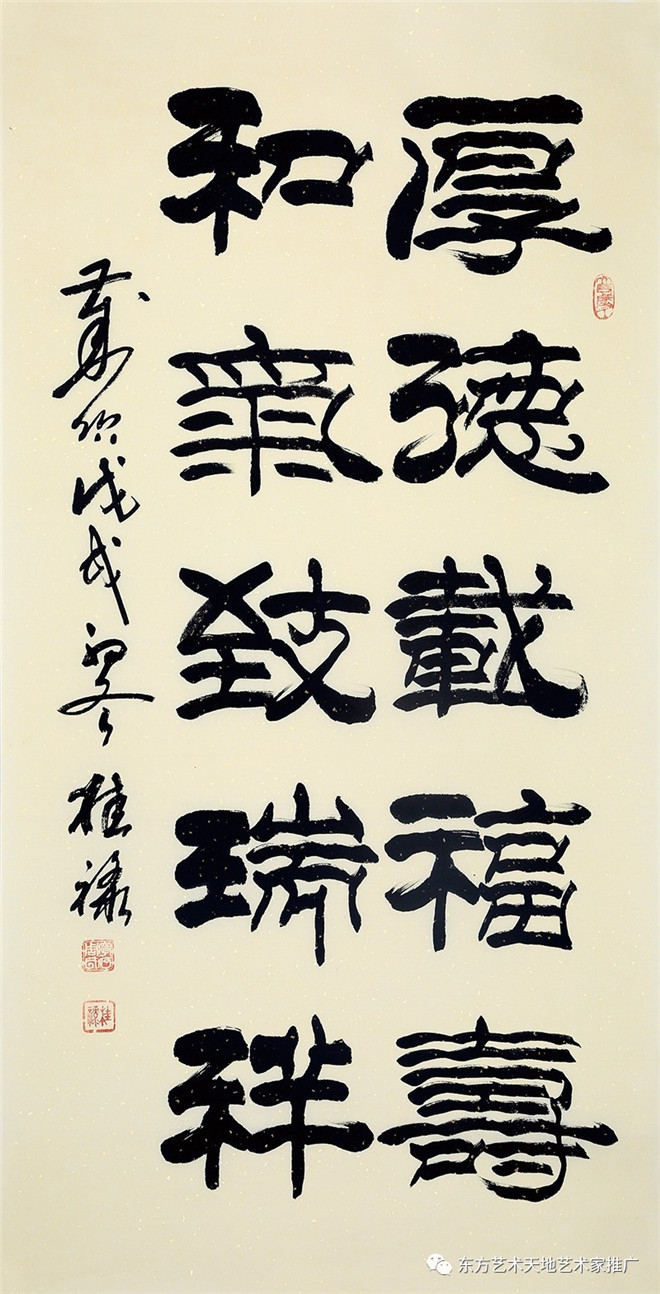 厚德載福壽
和氣致瑞祥
戊戌初冬桂祿
桂祿
东方艺术天地艺术家推广